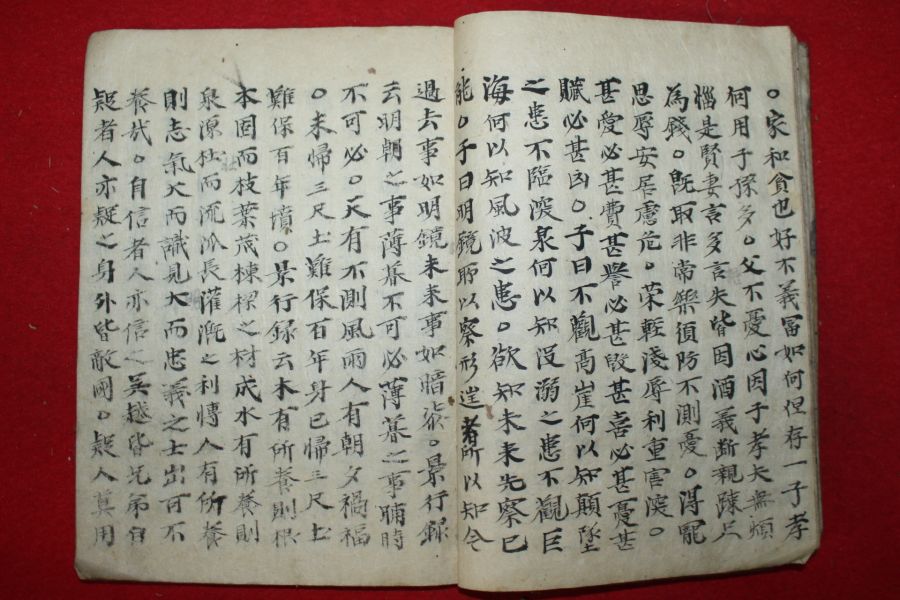 。家和貧也好不義冨如何但存一子孝
何用子孫多。父不憂心因子孝夫無煩
惱是賢妻言多言失皆因酒義斷親踈只
為錢。旣取非常樂須防不測憂。得寵
思辱安居慮危。榮輕淺辱利重害深。
甚愛必甚費甚譽必甚毁甚喜必甚憂甚
贓必甚凶。子曰不觀高崖何以知顚墜
之患不臨深泉何以知沒溺之患不觀巨
海何以知風波之患。欲知未來先察已
能。子曰明鏡所以察形者所以知今
過去事如明鏡未來事如暗漆。景行録
云明朝之事薄暮不可必薄暮之事晡時
不可必。天有不測風雨人有朝夕禍福
。未歸三尺土難保百年身已歸三尺土
難保百年墳。景行録云木有所養則根
本固而枝葉茂棟樑之材成水有所養則
泉源壯而流派長灌漑之利慱人有所養
則志氣大而識見大而忠義之士出可不
養哉。自信者人亦信之吳越皆兄弟自
疑者人亦疑之身外皆敵國。疑人莫用